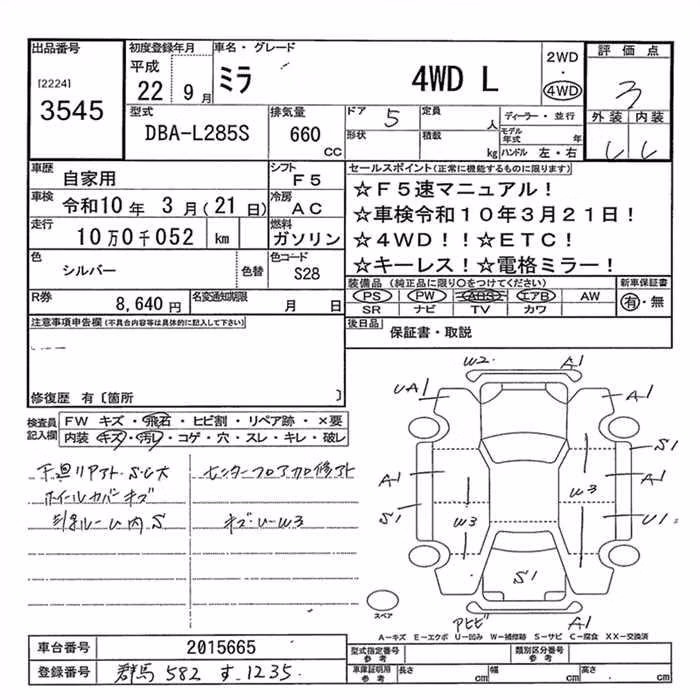 出品番号
[2224]
3545
初度登録年月
平成
22 9 月
車名・グレード
ミラ 4WD L
2WD
・
4WD
評価点
3
外装 内装
型式
DBA-L285S
排気量
660
CC
ドア 5
形状
定員 人
積載 kg
ディーラー・並行
モデル年式 年
ハンドル 左・右
車歴
自家用
シフト
F5
車検
令和10年 3月(21日)
冷房
AC
走行
10万0千052 km
燃料
ガソリン
色
シルバー
色替
色コード
S28
R券
8,640 円
名変通知期限
月 日
セールスポイント(正常に機能するものに限ります)
☆F5速マニュアル!
☆車検令和10年3月21日!
☆4WD!!☆ETC!
☆キーレス!☆電格ミラー!
装備品(純正品に限り○をつけてください)
PS PW ABS エアB AW
SR ナビ TV カワ
新車保証書
有・無
後日品
保証書・取説
注意事項申告欄(不具合内容等は具体的に記入して下さい)
修復歴 有〔箇所 〕
検査員記入欄
FW キズ・飛石・ヒビ割・リペア跡・×要
内装 キズ・汚レ・コゲ・穴・スレ・キレ・破レ
下廻リアスト・S・C大
ホイールカバーキズ
ルーム内S
センターフロアカロ修アト
キズ・U・W3
W2 A1
UA1 A1
S1
A1 A1
S1 W3 W3 U1
S1
アヒビ A1
スペア
A-キズ E-エクボ U-凹み W-補修跡 S-サビ C-腐食 XX-交換済
車台番号
2015665
登録番号
群馬 582 す 1235
型式指定番号
参考
類別区分番号
参考
車庫証明用
参考
長さ cm 幅 cm 高さ cm